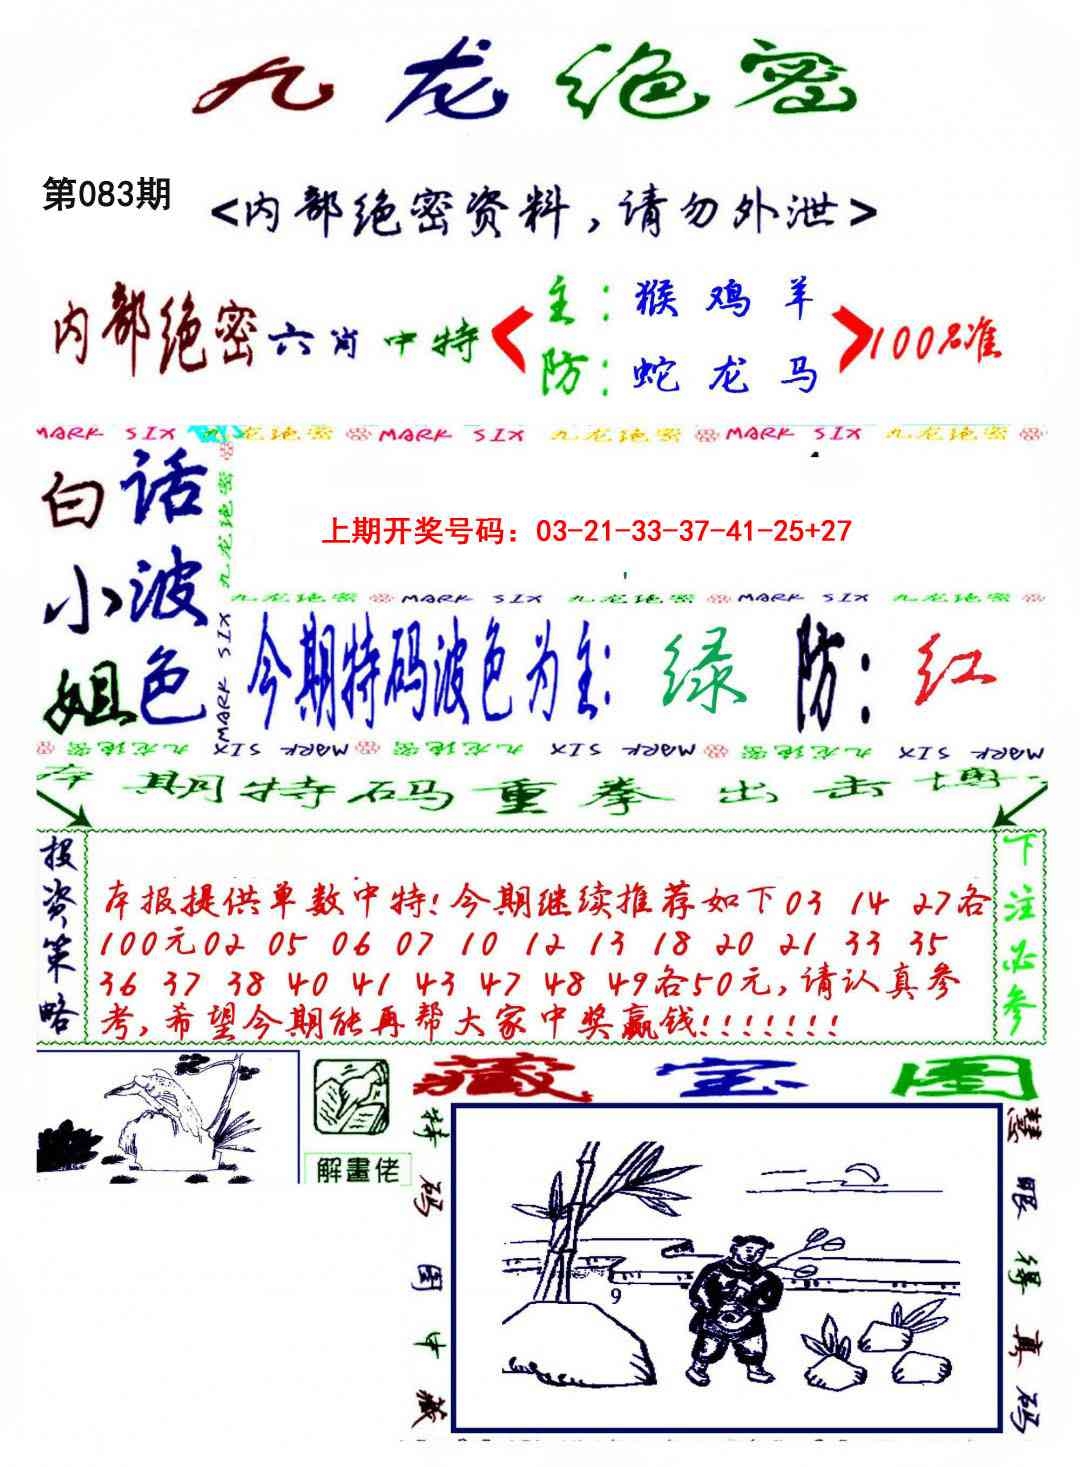 九龙绝密
第083期
<内部绝密资料,请勿外泄>
内部绝密六肖中特
主:猴 鸡 羊
防:蛇 龙 马
100%准
MARK SIX 九龙绝密 MARK SIX 九龙绝密 MARK SIX 九龙绝密
白小姐
话波色
九龙绝密
MARK SIX
上期开奖号码：03-21-33-37-41-25+27
九龙绝密 MARK SIX 九龙绝密 MARK SIX 九龙绝密
今期特码波色为主: 绿 防: 红
九龙绝密 MARK SIX 九龙绝密 MARK SIX 九龙绝密 MARK SIX
本期特码重拳出击博
投资策略
本报提供单数中特!今期继续推荐如下03 14 27各
100元02 05 06 07 10 12 13 18 20 21 33 35
36 37 38 40 41 43 47 48 49各50元,请认真参
考,希望今期能再帮大家中奖赢钱!!!!!!!
下注必参
解畫佬
藏宝图
特码图中藏
9
慧眼得真码